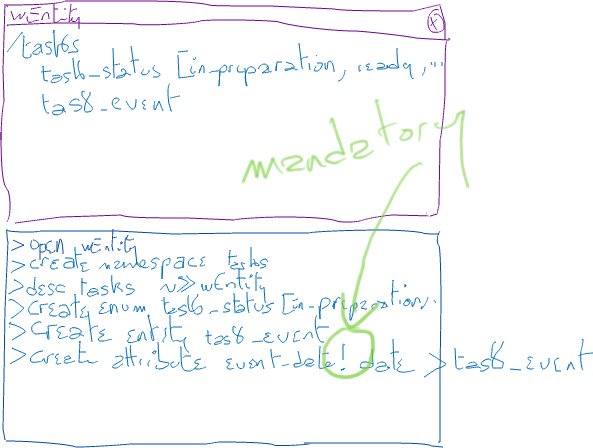 wEntity (x)
/tasks
task_status [in_preparation, ready, ...
task_event
mandatory
> open wEntity
> create namespace tasks
> desc tasks >> wEntity
> create enum task_status [in_preparation, .
> create entity task_event
> create attribute event_date! date > task_event